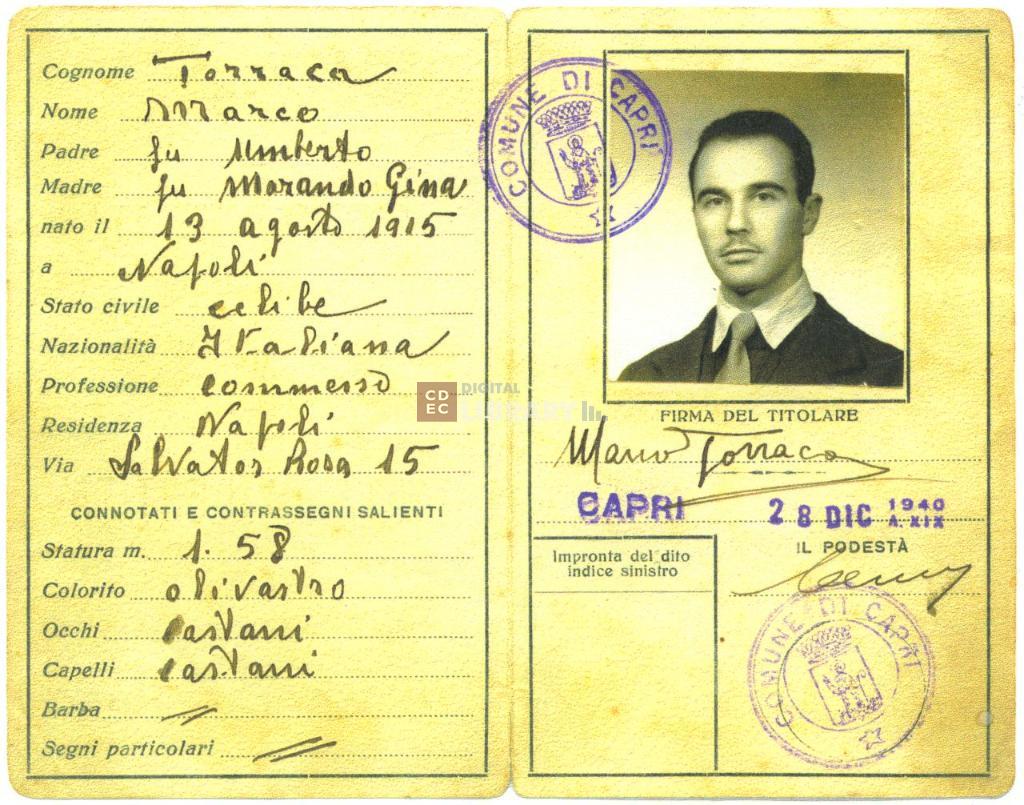 Cognome Torraca
Nome Marco
Padre fu Umberto
Madre fu Morando Gina
nato il 13 agosto 1915
a Napoli
Stato civile celibe
Nazionalità Italiana
Professione commesso
Residenza Napoli
Via Salvator Rosa 15
CONNOTATI E CONTRASSEGNI SALIENTI
Statura m. 1.58
Colorito olivastro
Occhi castani
Capelli castani
Barba //
Segni particolari //
COMUNE DI CAPRI
FIRMA DEL TITOLARE
Marco Torraca
CAPRI 28 DIC 1940 A. XIX
IL PODESTÀ
Impronta del dito
indice sinistro
COMUNE DI CAPRI
CD
EC
DIGITAL
LIBRARY